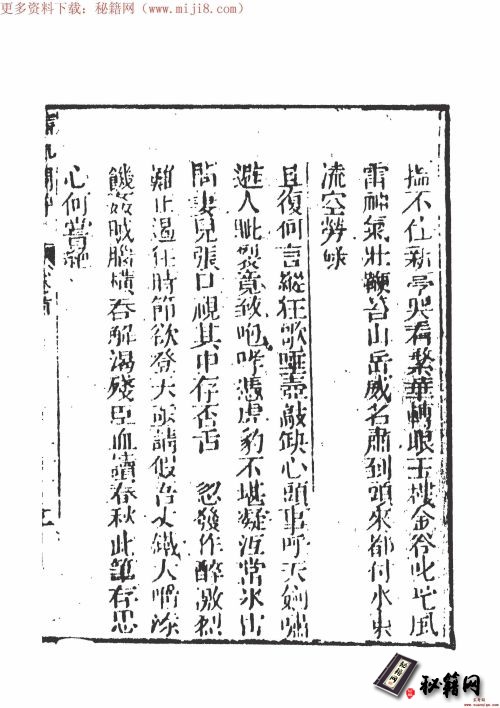 更多资料下载：秘籍网（www.miji8.com）
不住新亭哭看繁華轉眼玉樓金谷叱咤風
雷神氣壯鞭石山岳威名肅到頭來都付水東
流空勞
且復何言縱狂歌唾壺敲缺心頭事呼天劍嘯
避人眥裂竟致咆哮憑虎豹不堪凝沍常氷雪
問妻兒張口視其中存否舌 忽發作醉激烈
難止遏狂時節欲登天 請假吾 鐵人
饑 賊腦橫吞解渴殘臣血讀春秋此筆存思
心何嘗
卷首
秘籍网